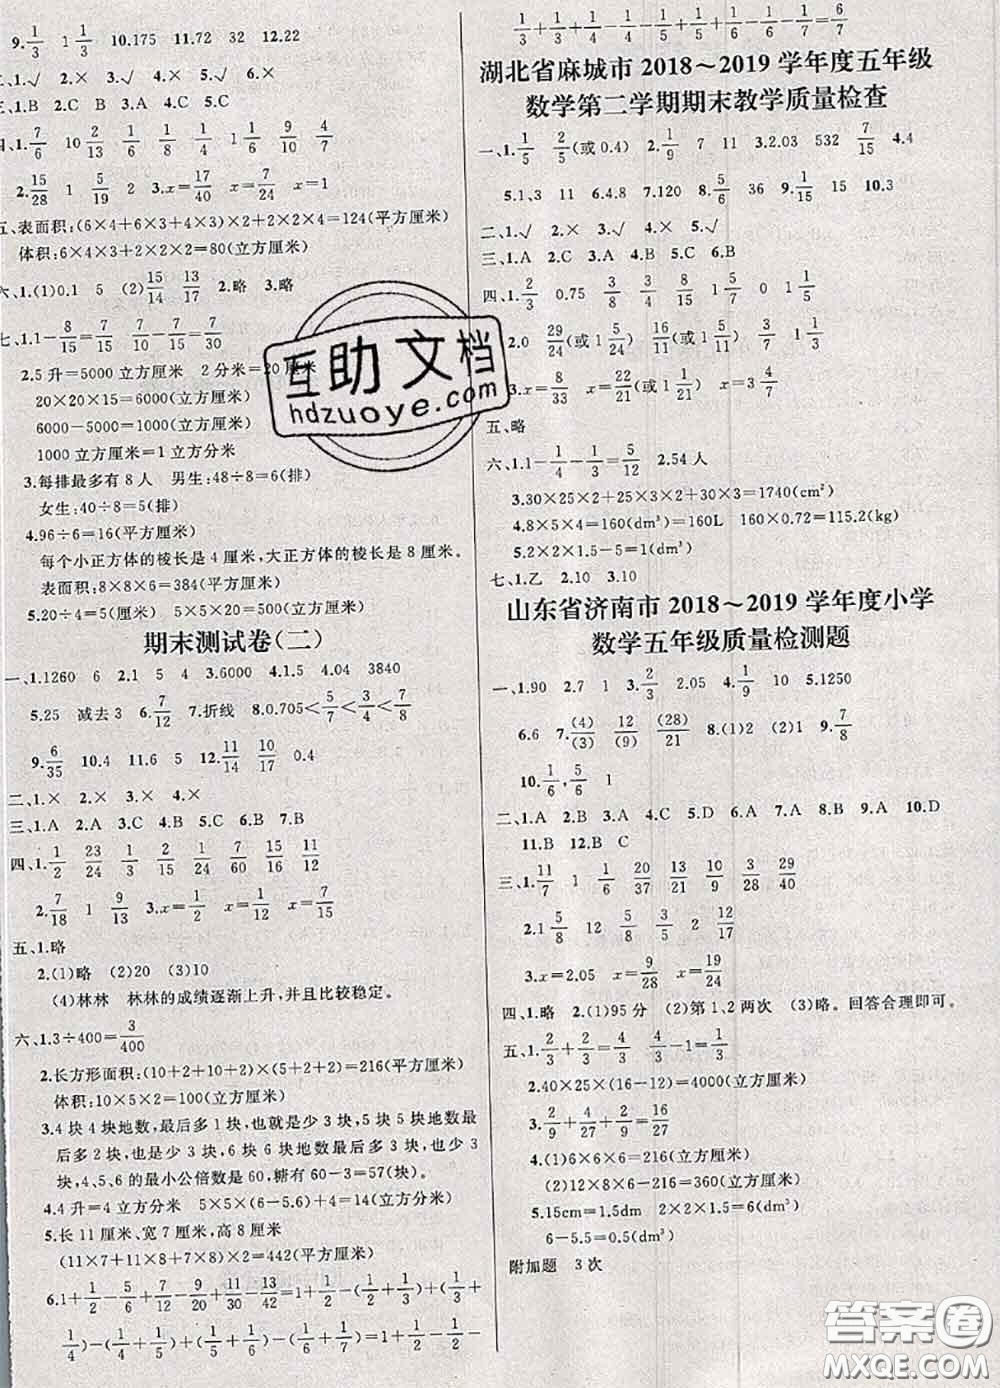 9.1/3 1 1/3 10.175 11.72 32 12.22
二、1.√ 2.× 3.√ 4.√ 5.√ 6.×
三、1.B 2.C 3.A 4.B 5.C
四、1.7/6 10 2/13 9/10 1/6 1/6 9/10 4/10
2.15/28 1 5/19 2 3.x=17/40 x=7/24 x=1
五、表面积:(6×4+6×3+4×3)×2+2×2×4=124(平方厘米)
体积:6×4×3+2×2×2=80(立方厘米)
六、1.(1)0.1 5 (2)15/14 13/17 2.略 3.略
七、1.1-8/15=7/15 7/15-7/30=7/30
2.5升=5000立方厘米 2分米=20厘米
20×20×15=6000(立方厘米)
6000-5000=1000(立方厘米)
1000立方厘米=1立方分米
3.每排最多有8人 男生:48÷8=6(排)
女生:40÷8=5(排)
4.96÷6=16(平方厘米)
每个小正方体的棱长是4厘米,大正方体的棱长是8厘米。
表面积:8×8×6=384(平方厘米)
5.20÷4=5(厘米) 5×5×20=500(立方厘米)
期末测试卷(二)
一、1.1260 6 2.1 5 4 3.6000 4.1.5 4.04 3840
5.25 减去3 6.7/12 7.折线 8.0.705<5/7<3/4<7/8
9.6/35 10.4 11.6 5 12.11/14 10/17 0.4
二、1.× 2.× 3.× 4.×
三、1.A 2.A 3.C 4.B 5.C 6.B 7.B
四、1.1/2 23/24 1/3 2/15 1/24 7/60 15/16 11/12
2.7/18 1 9/13 3.x=1/2 x=1/12 x=7/15
五、1.略
2.(1)略 (2)20 (3)10
(4)林林 林林的成绩逐渐上升,并且比较稳定。
六、1.3÷400=3/400
2.长方形面积:(10+2+10+2)×(5+2+2)=216(平方厘米)
体积:10×5×2=100(立方厘米)
3.4块4块地数,最后多1块,也就是少3块,5块5块地数最
后多2块,也是少3块,6块6块地数最后多3块,也是少3
块,4、5、6的最小公倍数是60,糖有60-3=57(块)。
4.4升=4立方分米 5×5×(6-5.6)+4=14(立方分米)
5.长11厘米、宽7厘米,高8厘米
(11×7+11×8+7×8)×2=442(平方厘米)
6.1+1/2-5/6+7/12-9/20+11/30-13/42=1+1/2-(1/2+1/3)+(1/3+
1/4)-(1/4+1/5)+(1/5+1/6)-(1/6+1/7)=1+1/2-1/2-
1/3+1/3+1/4-1/4-1/5+1/5+1/6-1/6-1/7=6/7
湖北省麻城市2018~2019学年度五年级
数学第二学期期末教学质量检查
一、1.1/5 2/5(或0.4) 2.1/9 7 11 3.2.03 532 7/15 4.4
5.1、3 11 6.4.8 7.120 8.5/6 36 9.1/15 15 10.3
二、1.√ 2.× 3.√ 4.× 5.√
三、1.A 2.C 3.A 4.B 5.C 6.B
四、1.2/3 0.75 3/8 3/4 1 1/7 0 1 1/5
2.0 29/24(或1 5/24) 16/11(或1 5/11) 7/12
3.x=8/33 x=22/21(或1 1/21) x=3 4/7
五、略
六、1.1-1/4-1/3=5/12 2.54人
3.30×25×2+24×5=1740(cm²)
4.8×5×4=160(dm³)=160L 160×0.72=115.2(kg)
5.2×2×1.5-5=1(dm³)
七、1.乙 2.10 3.10
山东省济南市2018~2019学年度小学
数学五年级质量检测题
一、1.90 2.7 1 3.2/3 2.05 4.1/9 10 5.1250
6.6 7.(4)/(3) 12/(9) (28)/21 8.(1)2 (2)1 9.7/8
10.1/6 5/6 1
二、1.A 2.B 3.A 4.C 5.D 6.D 7.A 8.B 9.C 10.D
11.B 12.B C
三、1.11/7 1 1/6 20/37 13/21 10/9 3/28 29/40
2.1 5/8 12 5/8 3/5 2 9/12
3.x=2.05 x=9/28 x=19/24
四、1.略 2.(1)95分 (2)第1、2两次 (3)略。回答合理即可。
五、1.2/3+2/3=4/3 4/3-1=1/3
2.40×25×(16-12)=4000(立方厘米)
3.2/9+4/27+2/9=16/27
4.(1)6×6×6=216(立方厘米)
(2)12×8×6-216=360(立方厘米)
5.15cm=1.5dm 2×2×1.5=6(dm³)
6-5.5=0.5(dm³)
附加题 3次
互助文档
hdzuoye.com
答案圈
MXQE.COM